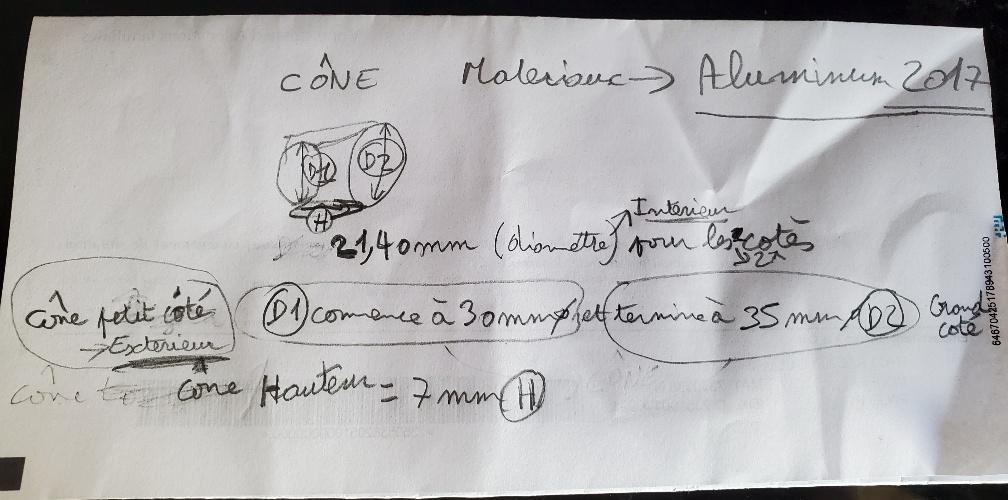 CÔNE Materiaux → Aluminium 2017
D1 D2
H
Interieur
21,40mm (diamètre) pour les 2 cotès
Cône petit côté D1 comence à 30mm et termine à 35 mm D2 Grand cote
→ Exterieur
Cône Hauteur = 7 mm H
64670425178943100500